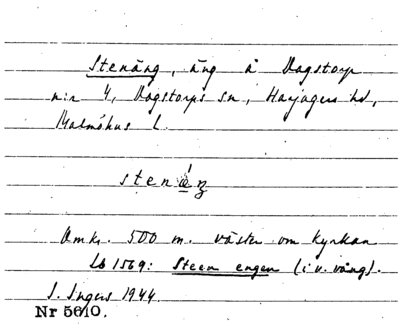 Stenäng, äng å Dagstorp
n:r 4, Dagstorps sn, Harjagers hd,
Malmöhus l.
stenéŋ
Omkr. 500 m. väster om kyrkan
Lb 1569: Steen engen (i v. vång).
I. Ingers 1944.
Nr 5610.